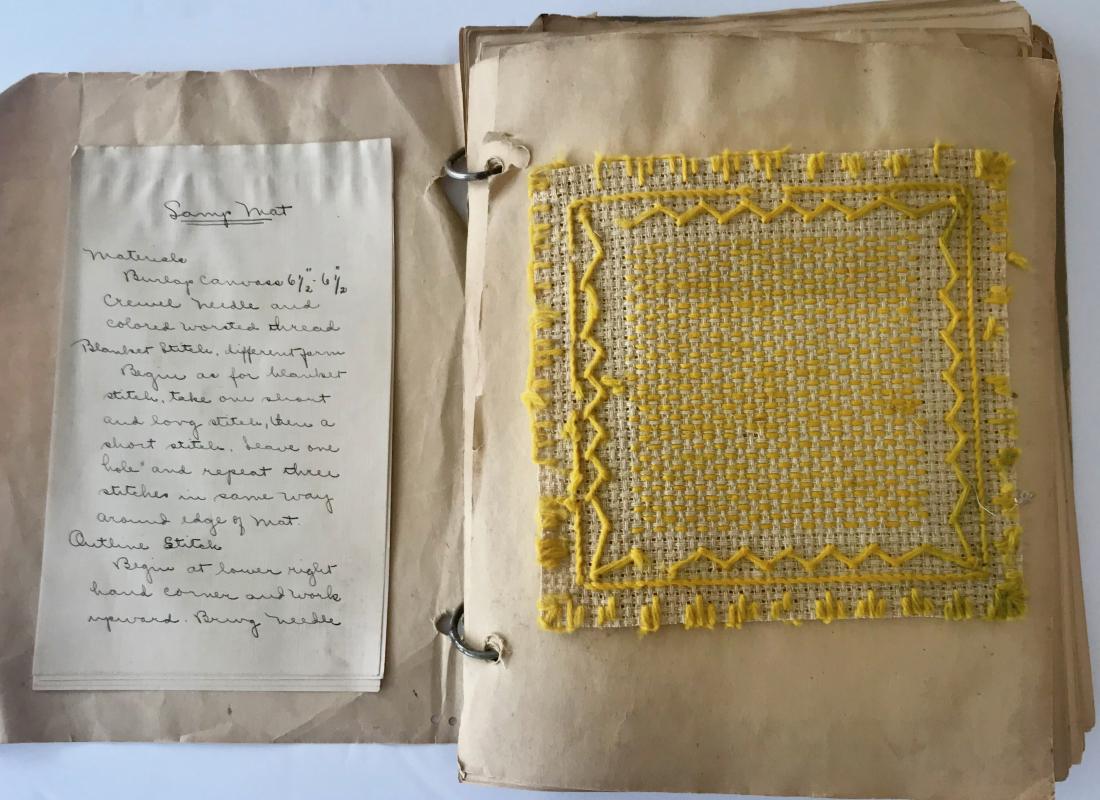 Lamp Mat
Materials
Burlap Canvass 6½"- 6½"
Crewel Needle and
colored worsted thread
Blanket Stitch, different form
Begin as for blanket
stitch, take one short
and long stitch, then a
short stitch. Leave one
"hole" and repeat three
stitches in same way
around edge of Mat.
Outline Stitch
Begin at lower right
hand corner and work
upward. Bring Needle